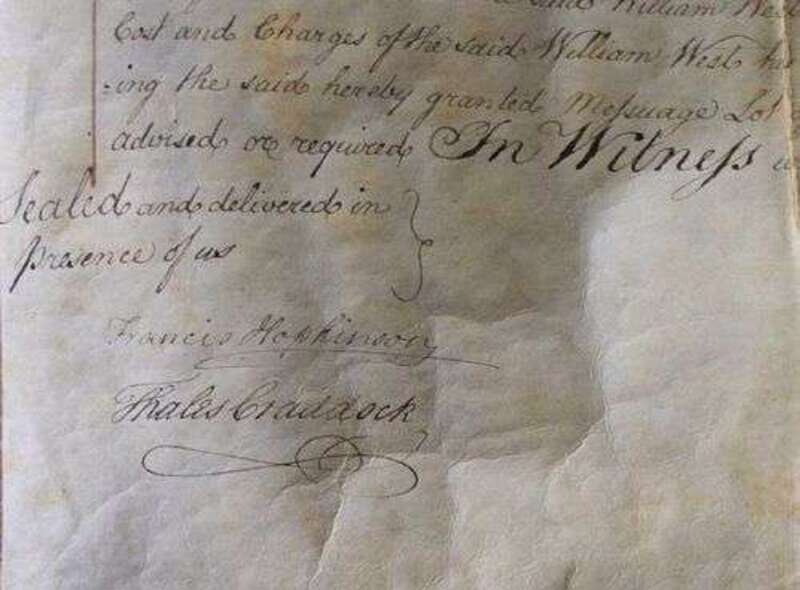 said William West
Cost and Charges of the said William West
ing the said hereby granted Meſsuage Lot
advised or required In Witneſs
Sealed and delivered in
presence of us
Francis Hopkinson
Thales Craddock